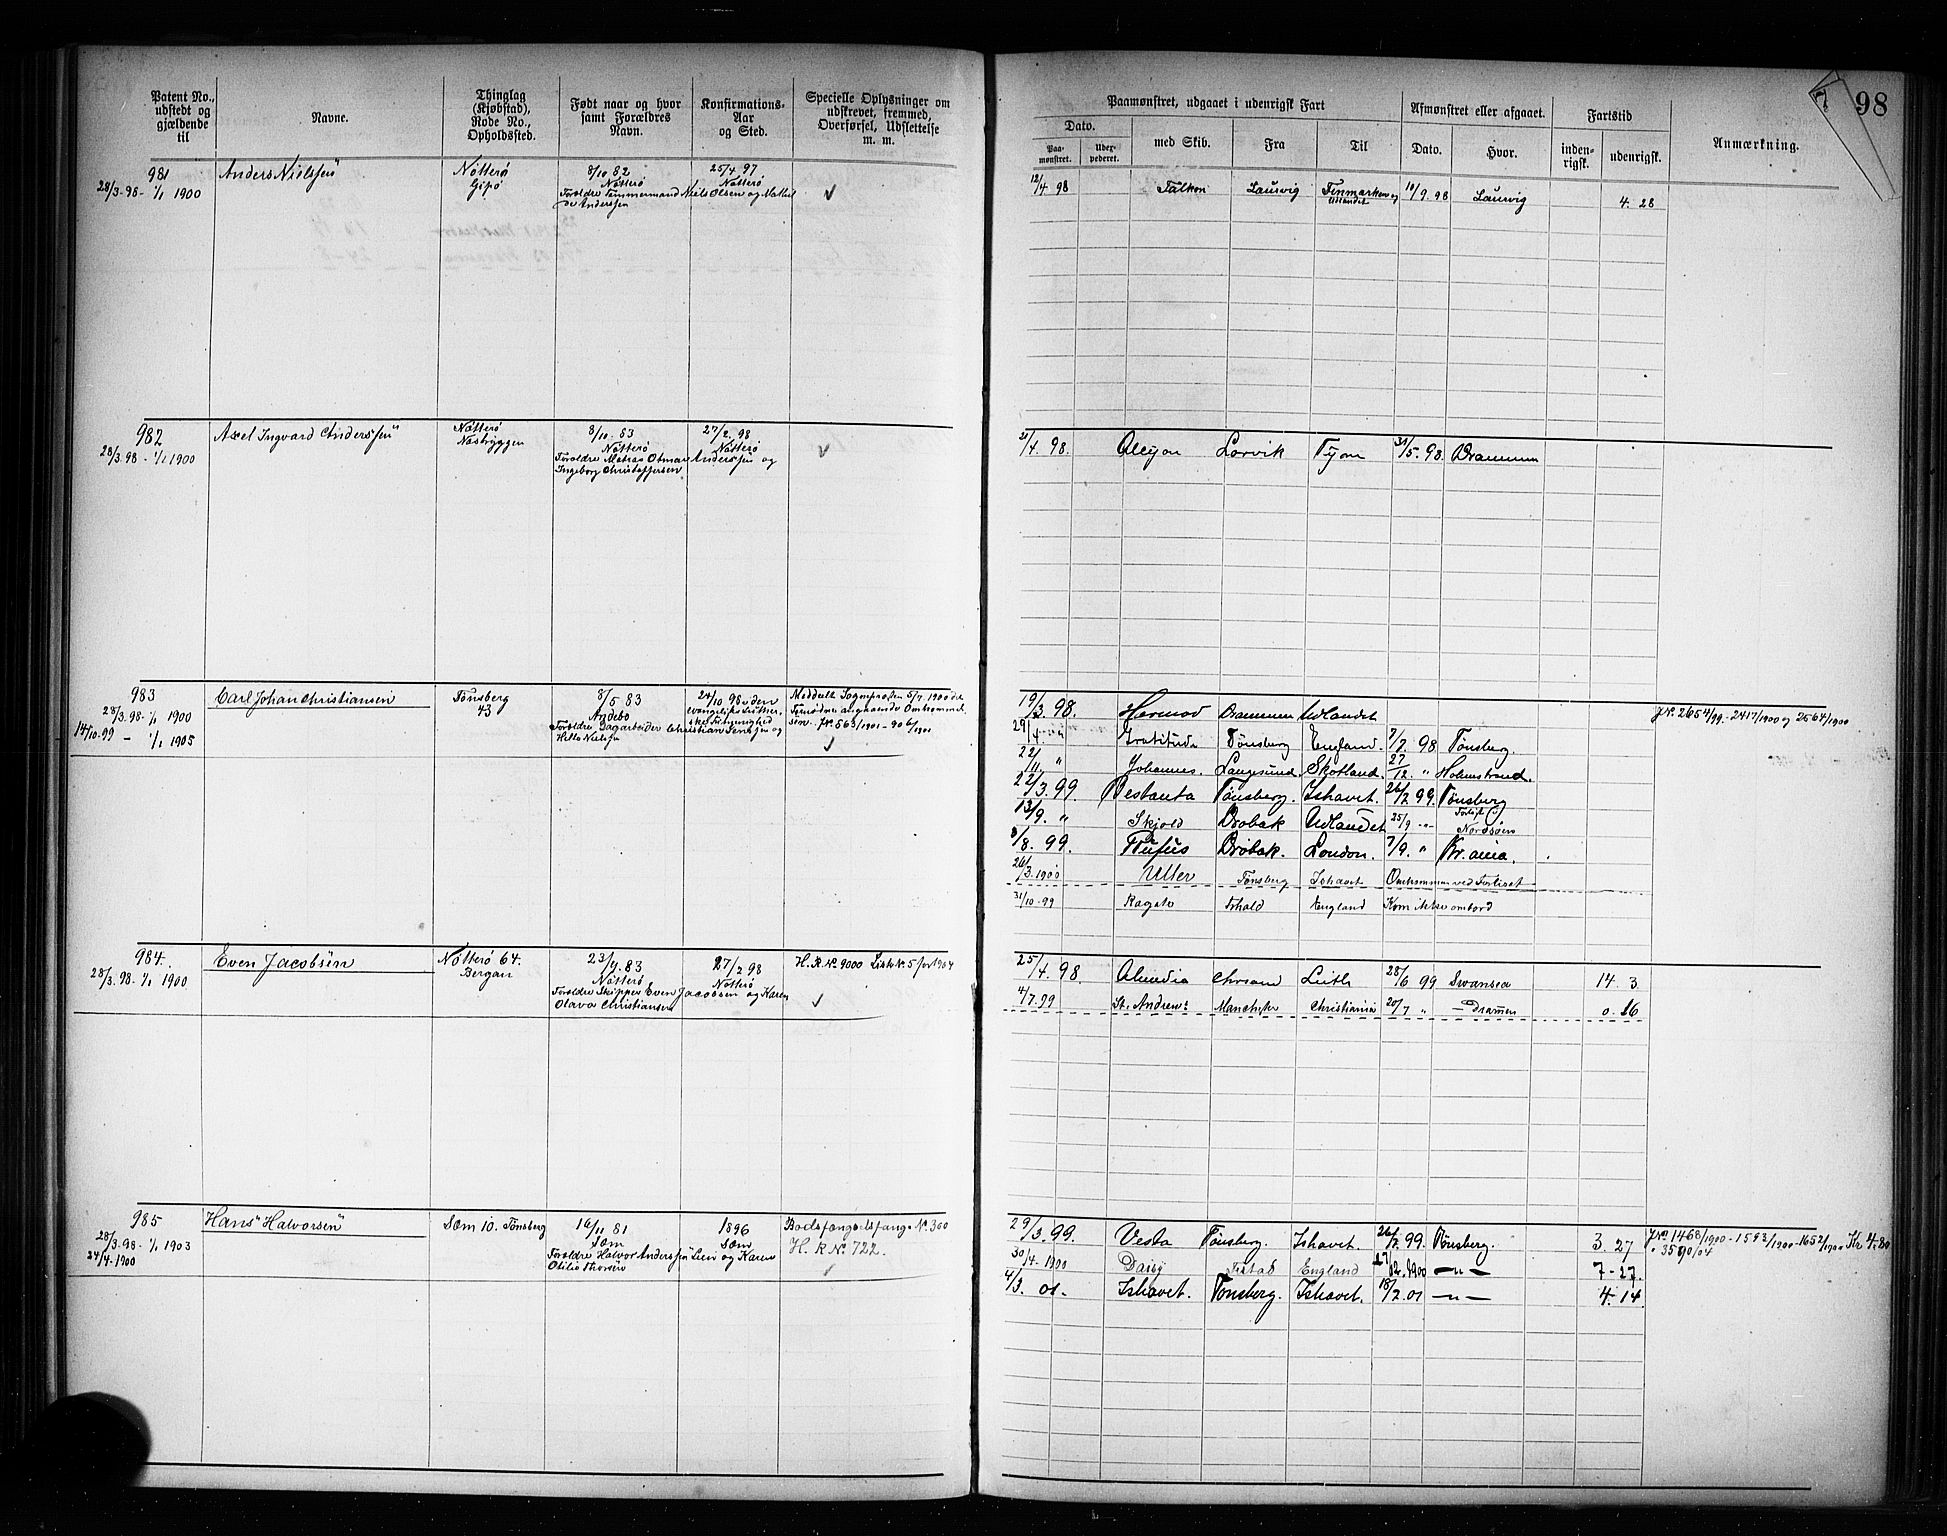 98
Patent No., udstedt og gjældende til
Navne.
Thinglag (Kjøbstad), Rode No., Opholdssted.
Født naar og hvor samt Forældres Navn.
Konfirmations-Aar og Sted.
Specielle Oplysninger om udskrevet, fremmed, Overførsel, Udslettelse m. m.
Paamønstret, udgaaet i udenrigsk Fart
Afmønstret eller afgaaet.
Fartstid
Anmærkning.
Dato.
Paa-mønstret.
Udex-pederet.
med Skib.
Fra
Til
Dato.
Hvor.
inden-rigsk.
udenrigsk.
981 Anders Nielsen Nøtterø 8/10 82 25/4 97
28/3-98- 1/1 1900 Gipø Nøtterø Nøtterø
Forældre Tømmermand Niels Olsen og
Anderssen
12/4 98 Falkon Laurvig Finmarken og 10/9 98 Laurvig 4. 28
982 Axel Ingvard Anderssen Nøtterø 8/10-83 27/2 98
28/3.98 - 1/1 1900 Næsbyggen Nøtterø Nøtterø
Forældre Matros Otmar Anderssen og
Ingeborg Christoffersen
21/4. 98. Alcyon Larvik Tyne 31/5. 98. Drammen
983 Carl Johan Christiansen Tønsberg 8/5 83 24/10 98 i den
28/3.98-1/1 1900 43 Andebo evangelisk luther
14/10-99 - 1/1 1905 Forældre Dagarbeider Christian Jensen og
Nielsen
Meddelt Sogneprosten 5/7 1900 det
Fornødne angaaende Omkommel-
sen. J.No. 563/1901 - 906/1901
19/3 98. Hermod Drammen Udlandet
J.No. 2654/99 - 2417/1900 og 2564/1900
29/4 Gratitude Tønsberg England. 7/7 98 Tønsberg.
22/11. " Johannes. Langesund. Skotland. 27/12. " Holmestrand.
22/3.99. Vestanta Tønsberg. Ishavet. 26/7 99. Tønsberg
13/9. " Skjold Drøbak Udlandet 25/9 -"- Forlist Nordsøen
8/8. 99. Rufus Drøbak. London. 7/9. " Kr.ania.
26/3.1900 Utter Tønsberg Ishavet Omkommen ved Forliset
31/10-99 Ragate Frhald England Kom ikke ombord
984. Even Jacobsen Nøtterø 64. 23/9.83 27/2 98 H.R.No. 9000 Liste No. 5 for 1904
28/3.98-1/1 1900 Bergan Nøtterø Nøtterø
Forældre Skipper Even Jacobsen og Karen
Olava Christiansen
25/4.98. Chrsand Leith 28/6 99 Swansea 14. 3
4/7.99 St. Andrews Manchester Christiania 20/7 " Drammen 0. 16
985 Hans Halvorsen Sæm 10. Tønsberg 16/11 81 1896 Bodsfængselsfange No. 300
28/3.98- 1/1 1903 Sæm Sæm H. R No. 722.
24/4-1900 Forældre Halvor Anderssen Lien og Karen
Otilie Thorsen
29/3.99. Vesta Tønsberg. Ishavet. 26/7. 99. Tønsberg. 3. 27
J.No. 1468/1900 - 1592/1900 - 1652/1900 Kr 4.80
" 3590/04
30/4-1900 Daisy Frstad England 27/12.1900 —"— 7-27.
4/3. 01. Ishavet. Tønsberg. Ishavet. 18/7.01 —"— 4. 14